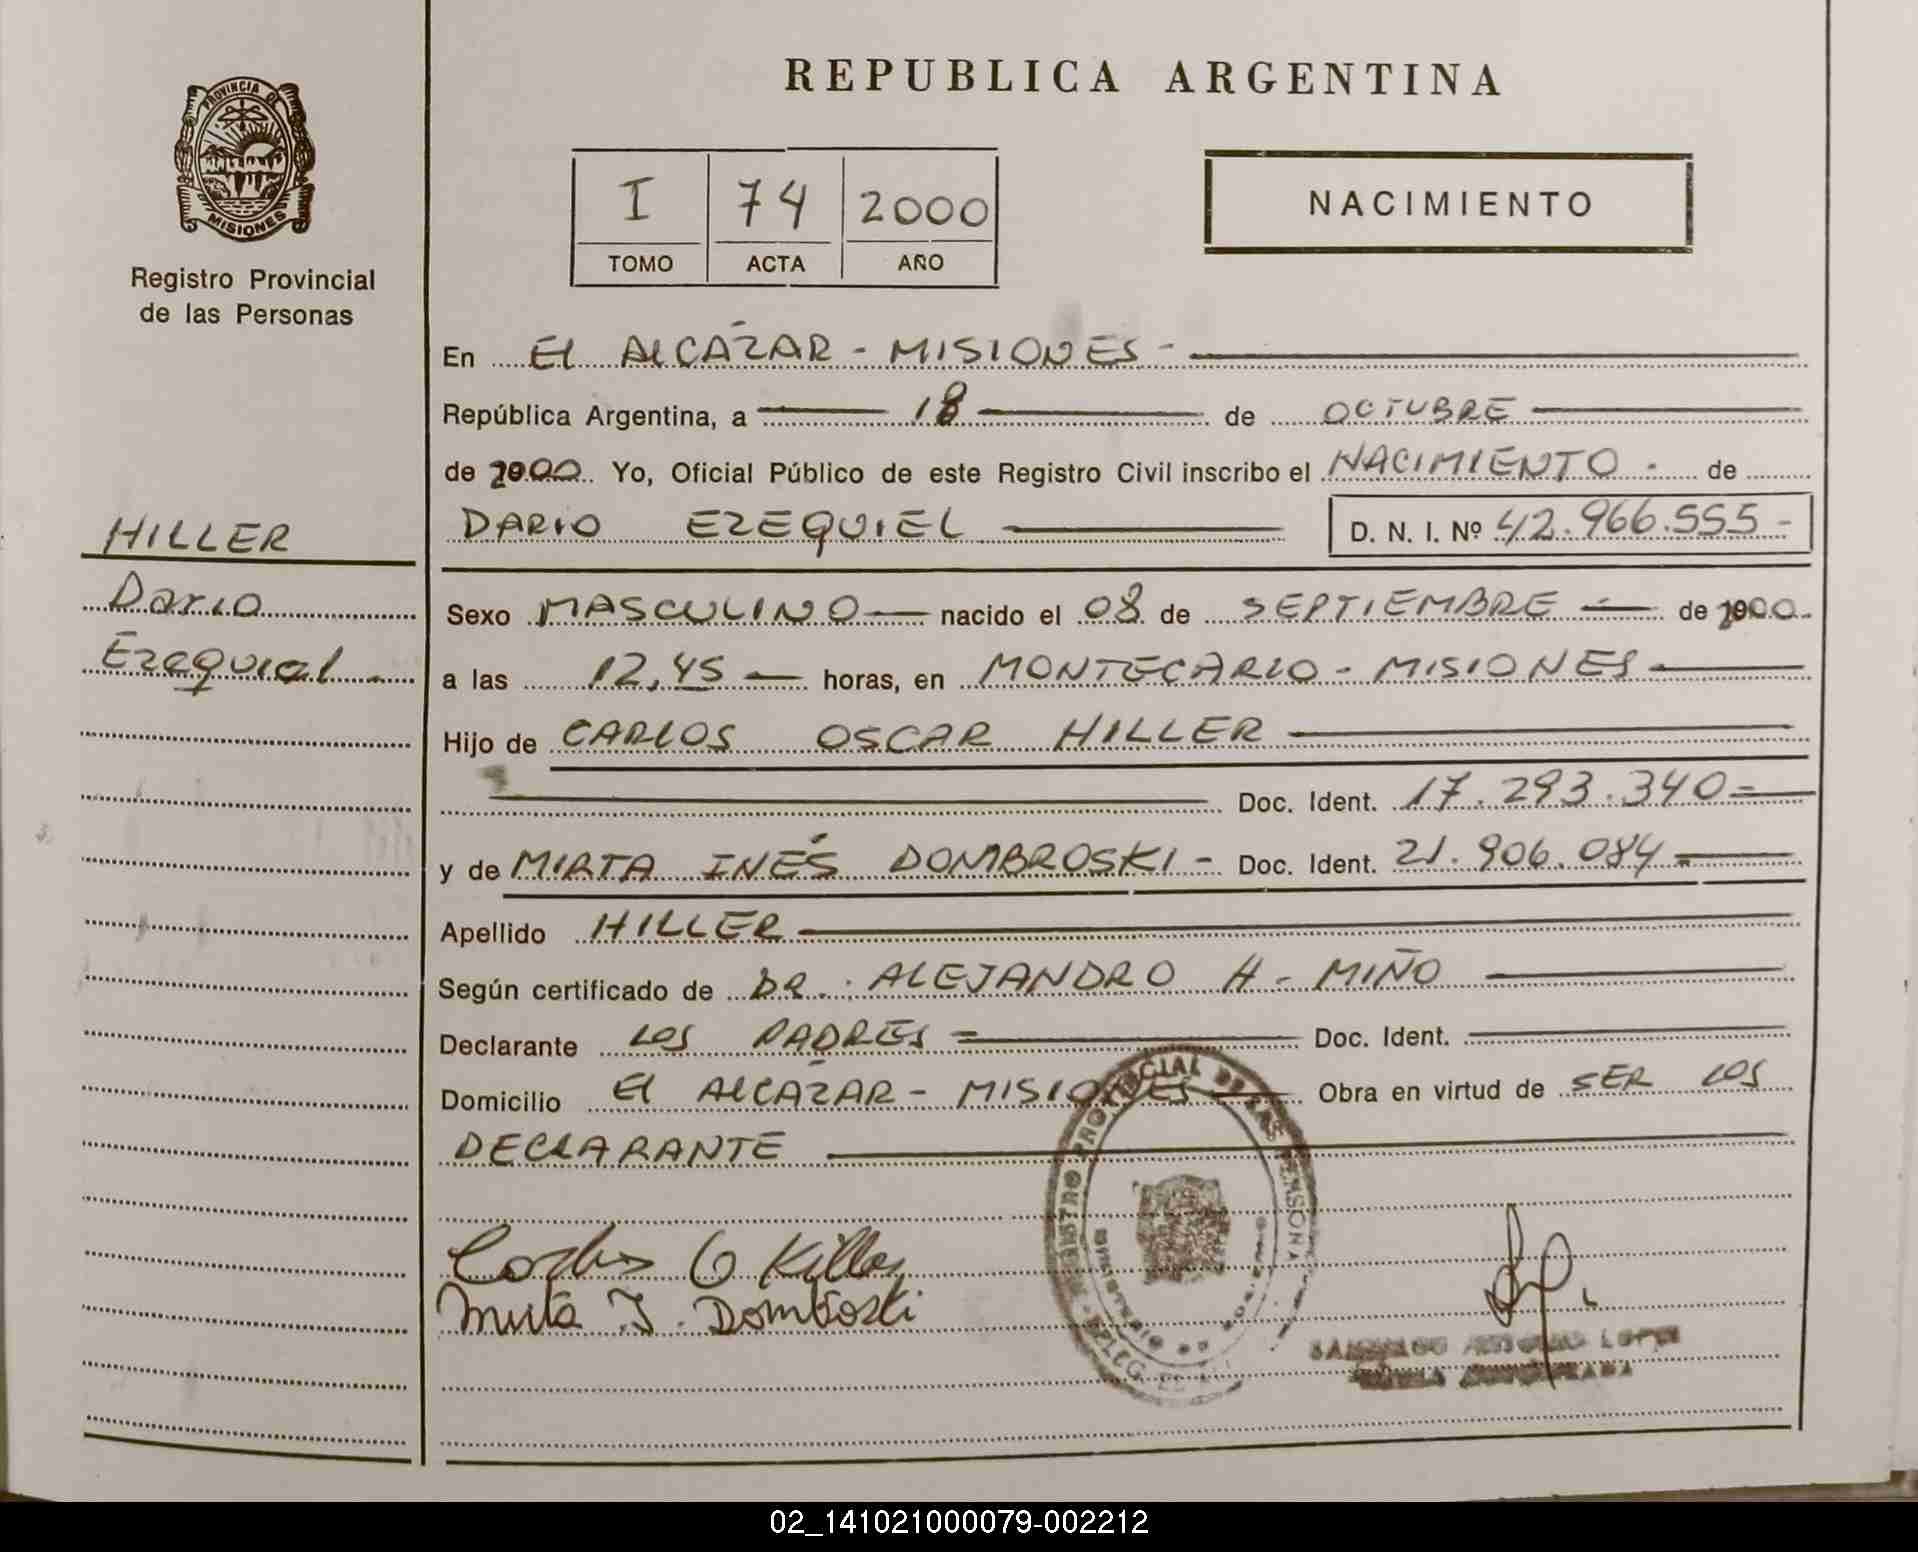 PROVINCIA DE
MISIONES
Registro Provincial
de las Personas
HILLER
Dario
Ezequiel -
REPUBLICA ARGENTINA
I 74 2000
TOMO ACTA AÑO
NACIMIENTO
En El ALCÁZAR - MISIONES -
República Argentina, a 18 de OCTUBRE
de 2000 Yo, Oficial Público de este Registro Civil inscribo el NACIMIENTO - de
DARIO EZEQUIEL D. N. I. Nº 42.966.555-
Sexo MASCULINO nacido el 08 de SEPTIEMBRE de 2000
a las 12,45 horas, en MONTECARLO - MISIONES
Hijo de CARLOS OSCAR HILLER
Doc. Ident. 17.293.340=
y de MIRTA INÉS DOMBROSKI - Doc. Ident. 21.906.084=
Apellido HILLER
Según certificado de DR. ALEJANDRO H - MIÑO
Declarante LOS PADRES = Doc. Ident.
Domicilio El ALCÁZAR - MISIONES Obra en virtud de SER LOS
DECLARANTE
REGISTRO PROVINCIAL DE LAS PERSONAS
Carlos O Hiller
Mirta I. Dombroski
02_141021000079-002212